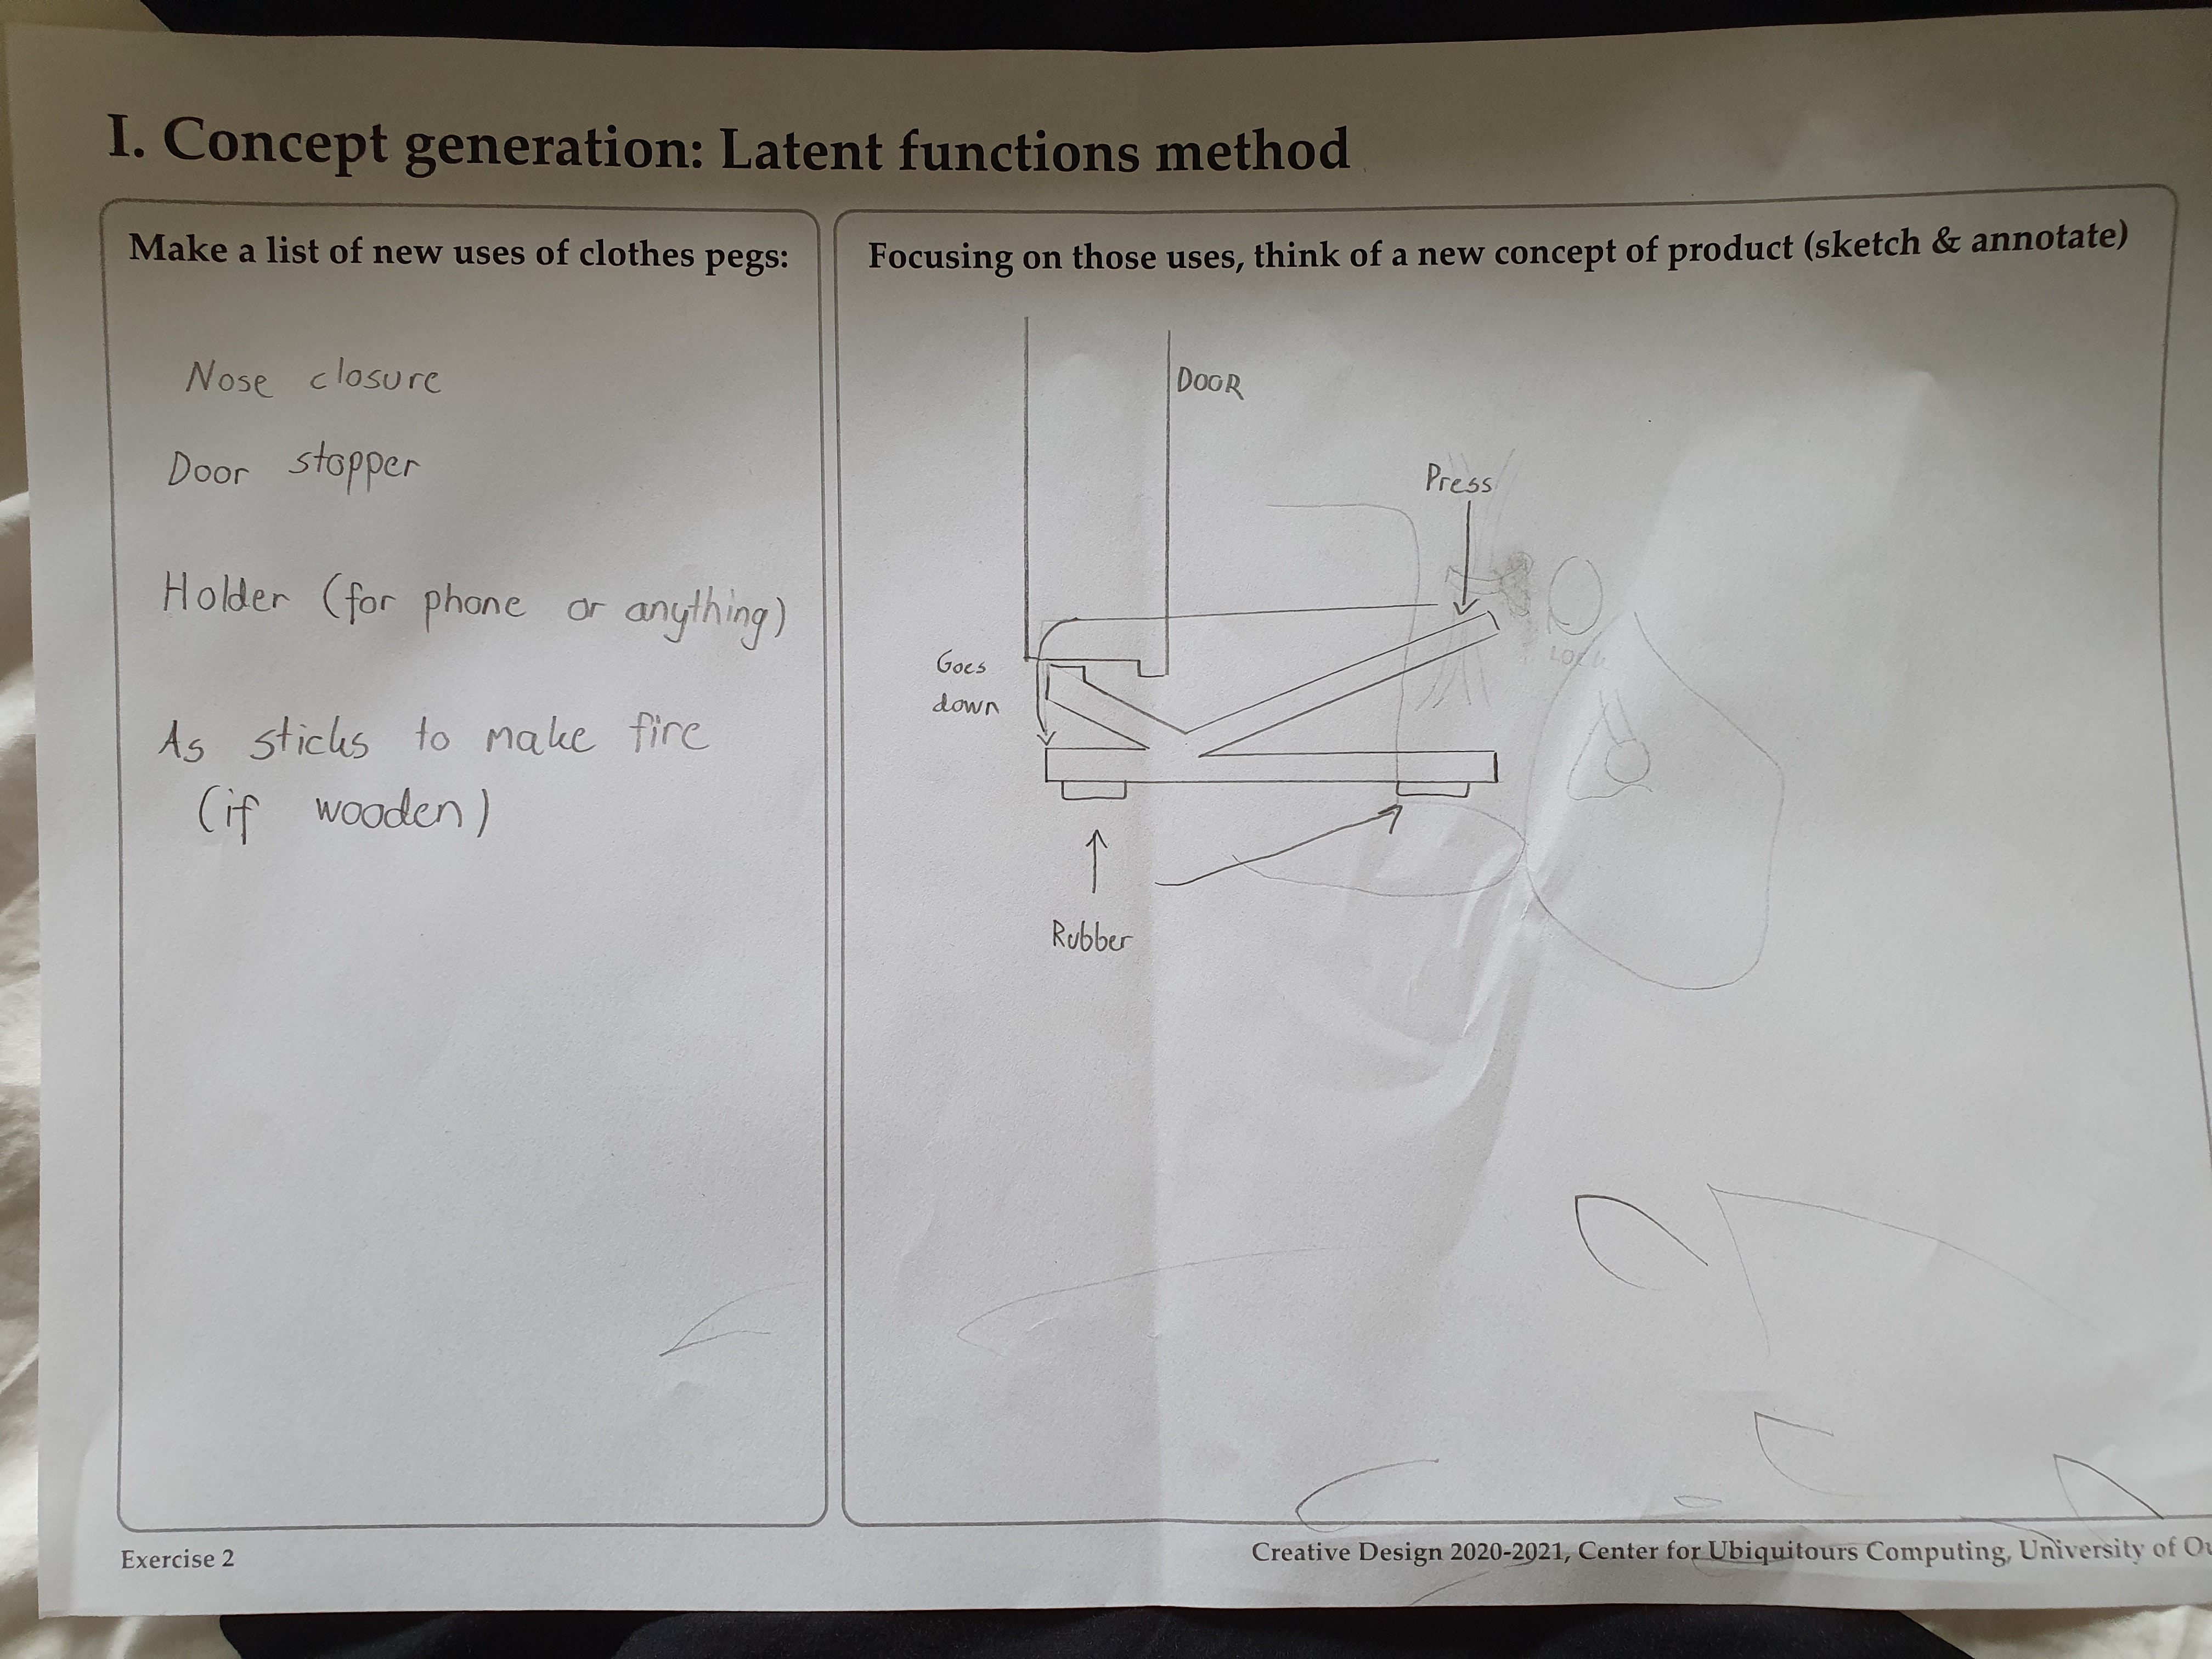 I. Concept generation: Latent functions method
Make a list of new uses of clothes pegs:
Nose closure
Door stopper
Holder (for phone or anything)
As sticks to make fire
(if wooden)
Focusing on those uses, think of a new concept of product (sketch & annotate)
DOOR
Press
LOCK
Goes
down
Rubber
Exercise 2
Creative Design 2020-2021, Center for Ubiquitours Computing, University of